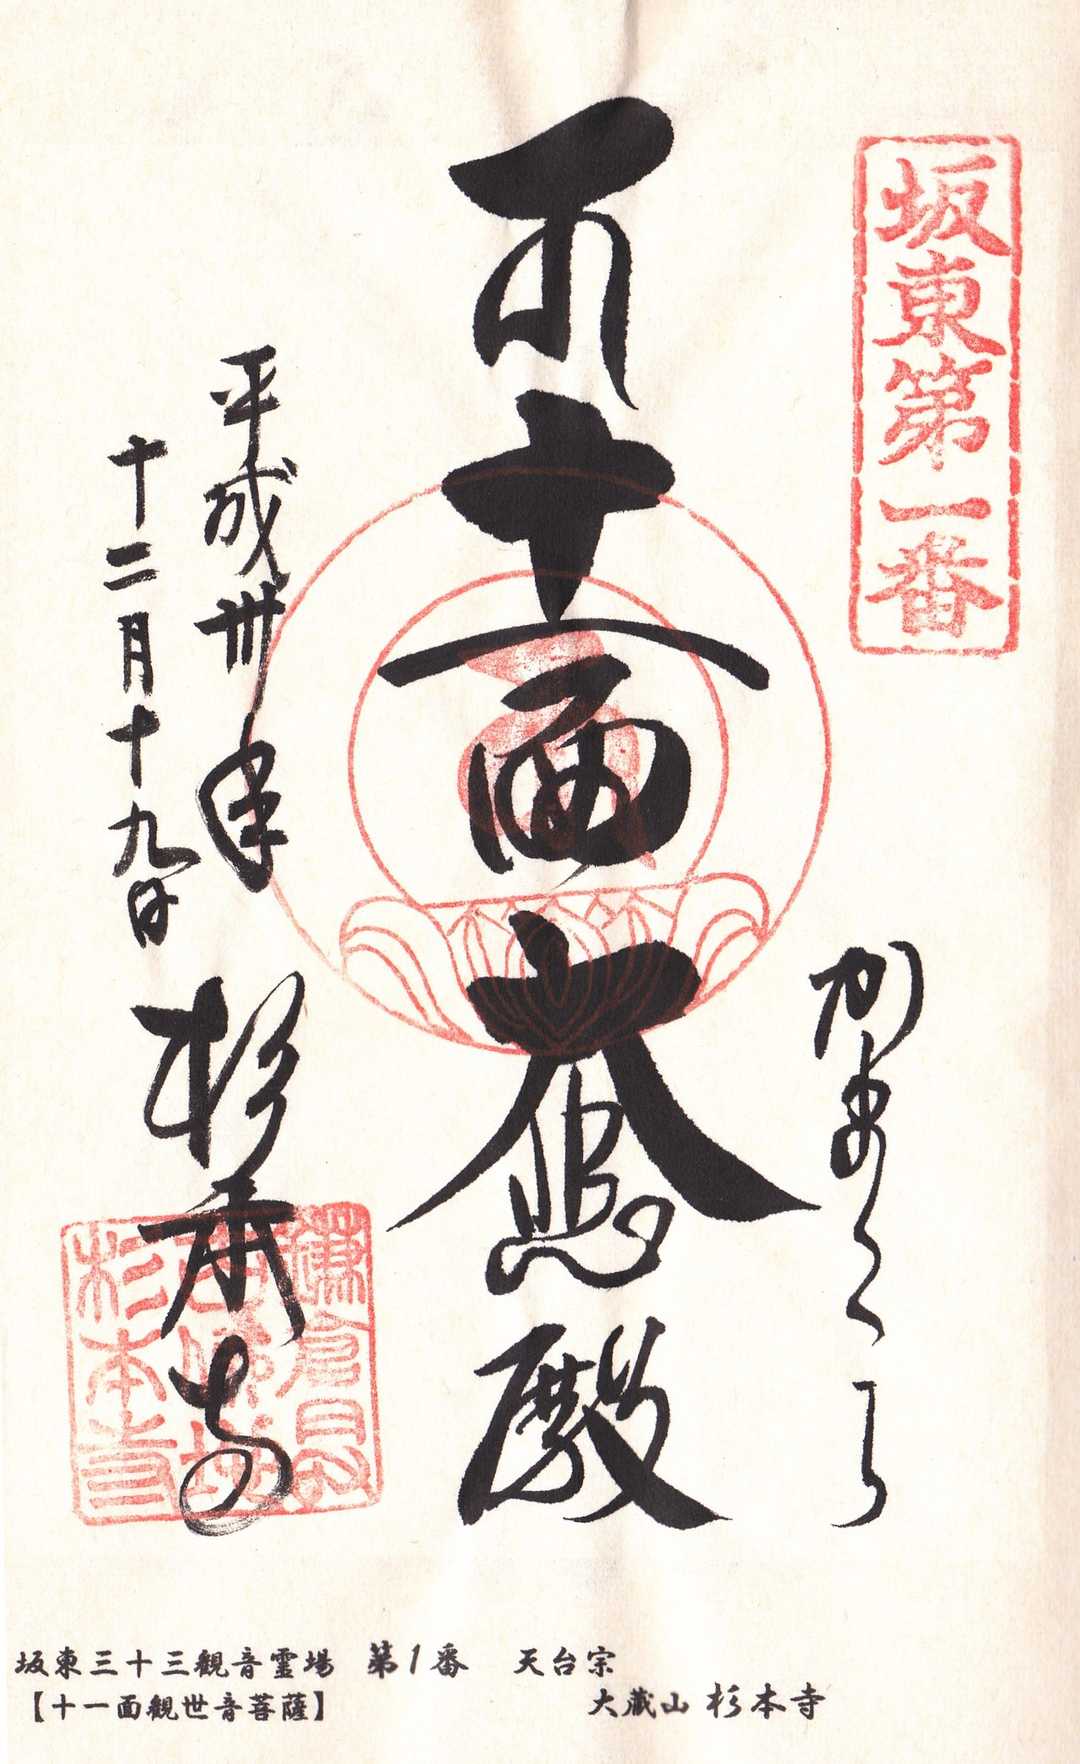 坂東第一番
かまくら
十一面大悲殿
平成卅年
十二月十九日
杉本寺
杉本寺
坂東三十三観音霊場 第1番 天台宗
【十一面観世音菩薩】 大蔵山 杉本寺